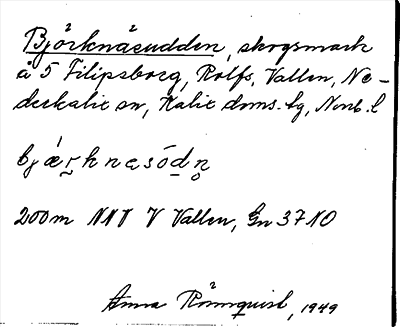 Björknäsudden, skogsmark
å 5 Filipsborg, Rolfs, Vallen, Ne-
derkalix sn, Kalix doms. lg, Norrb. l
bjæ̀ṛknạsódṇ
200 m NNV V Vallen, Gn 37 NO
Anna Rönnquist, 1949